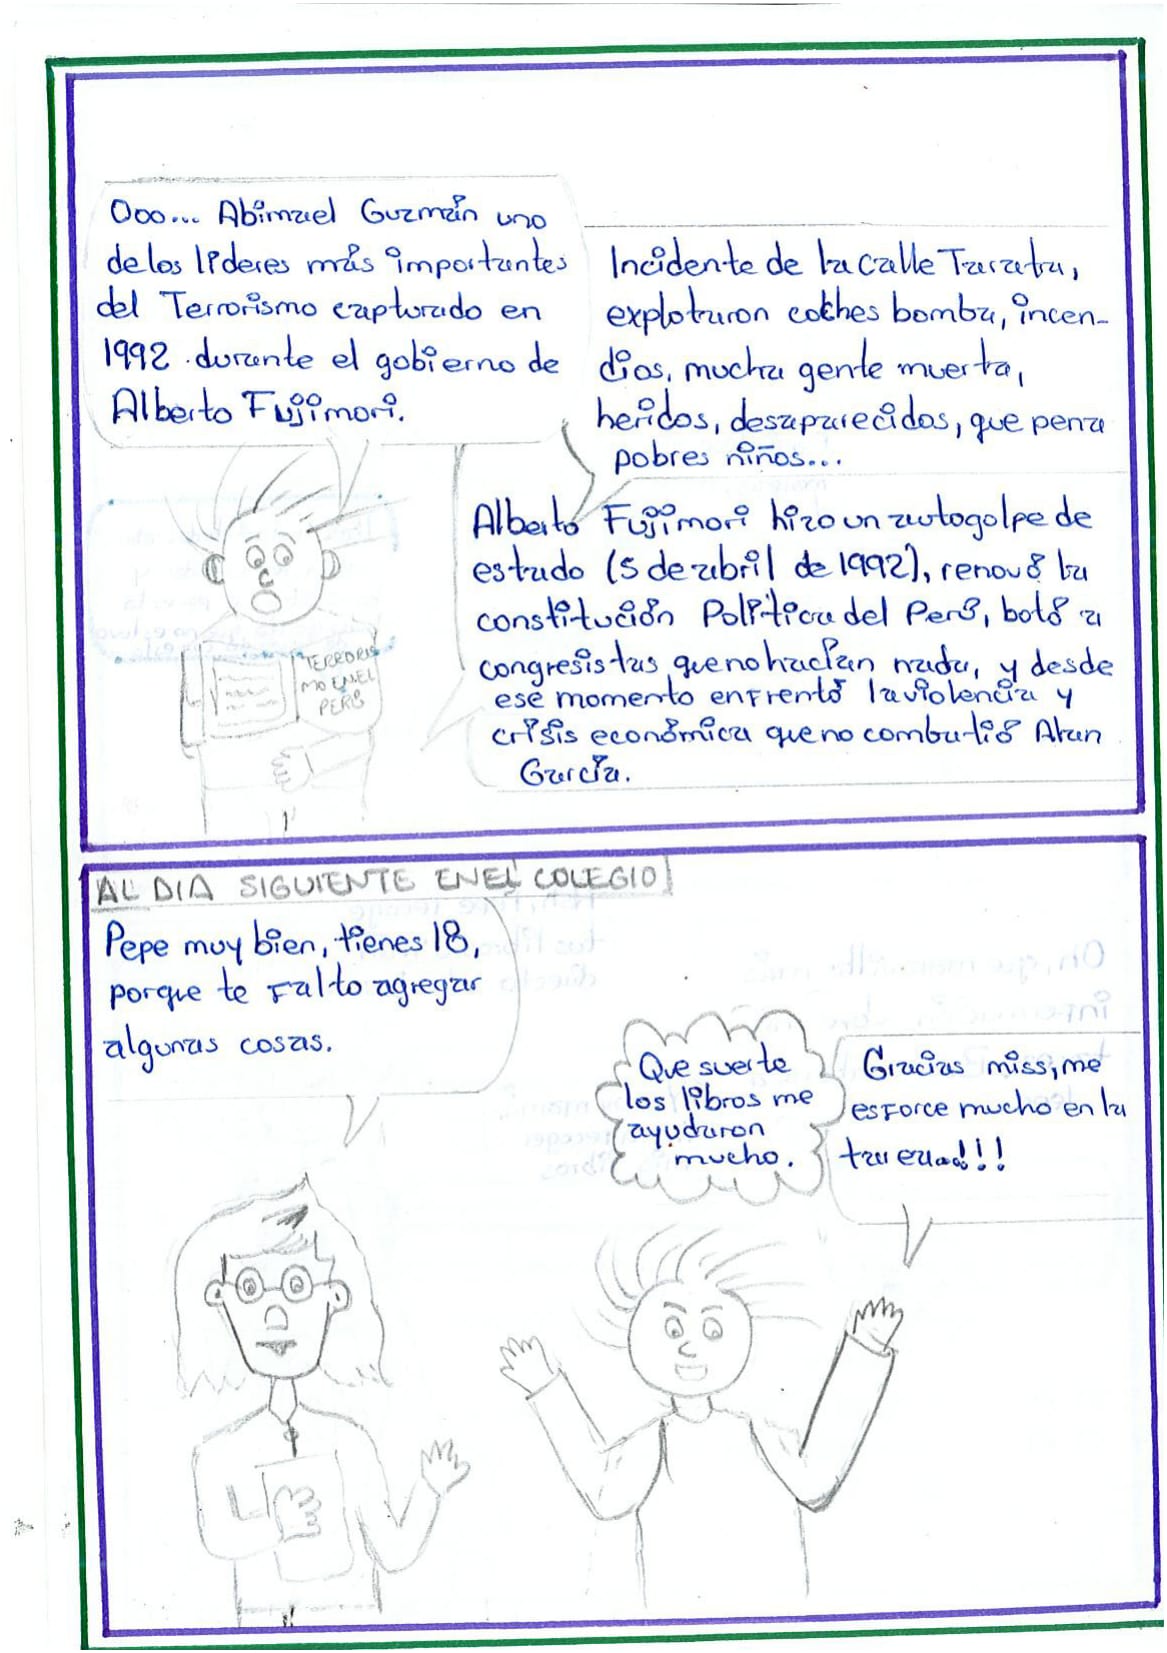 Ooo... Abimael Guzmán uno
de los líderes más importantes
del Terrorismo capturado en
1992 durante el gobierno de
Alberto Fujimori.
Incidente de la calle Tarata,
explotaron coches bomba, incen-
dios, mucha gente muerta,
heridos, desaparecidos, que pena
pobres niños...
Alberto Fujimori hizo un autogolpe de
estado (5 de abril de 1992), renovó la
constitución Política del Perú, botó a
congresistas que no hacían nada, y desde
ese momento enfrentó la violencia y
crisis económica que no combatió Alan
García.
TERRORIS
MO EN EL
PERÚ
AL DIA SIGUIENTE EN EL COLEGIO
Pepe muy bien, tienes 18,
porque te Falto agregar
algunas cosas.
Que suerte
los libros me
ayudaron
mucho.
Gracias miss, me
esForce mucho en la
tarea..!!!